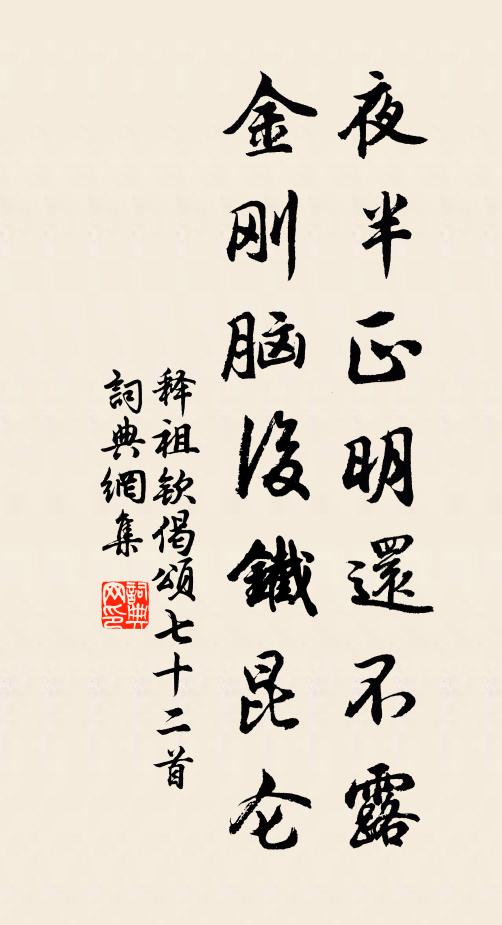 夜半正明還不露
金刚脑後鐵昆仑
释祖钦偈頌七十二首
詞典網集
詞典网印